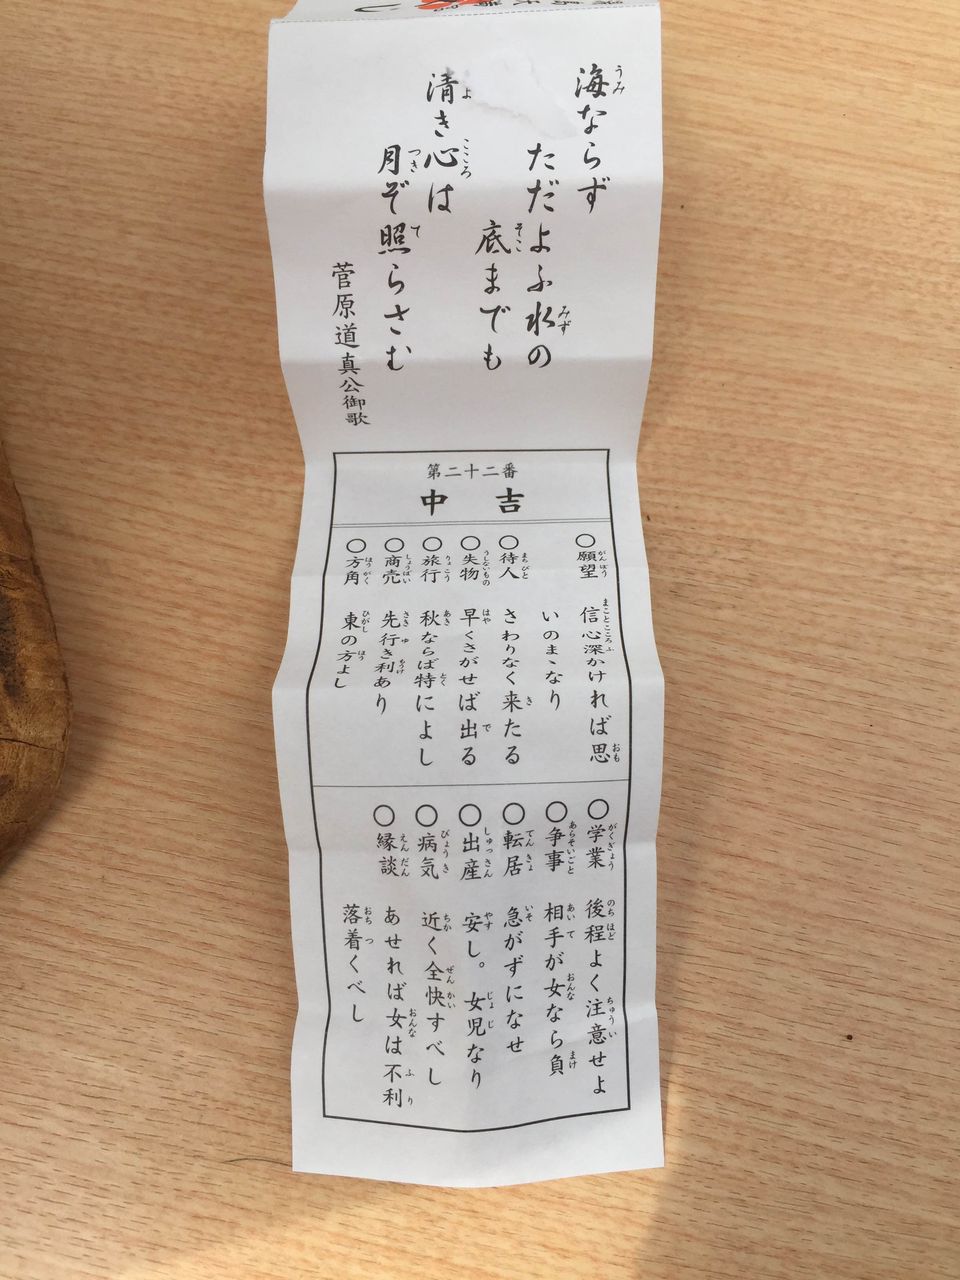 海ならず
ただよふ水の
底までも
清き心は
月ぞ照らさむ
菅原道真公御歌
第二十二番
中吉
○願望 信心深かければ思
いのまゝなり
○待人 さわりなく来たる
○失物 早くさがせば出る
○旅行 秋ならば特によし
○商売 先行き利あり
○方角 東の方よし
○学業 後程よく注意せよ
○争事 相手が女なら負
○転居 急がずになせ
○出産 安し。女児なり
○病気 近く全快すべし
○縁談 あせれば女は不利
落着くべし